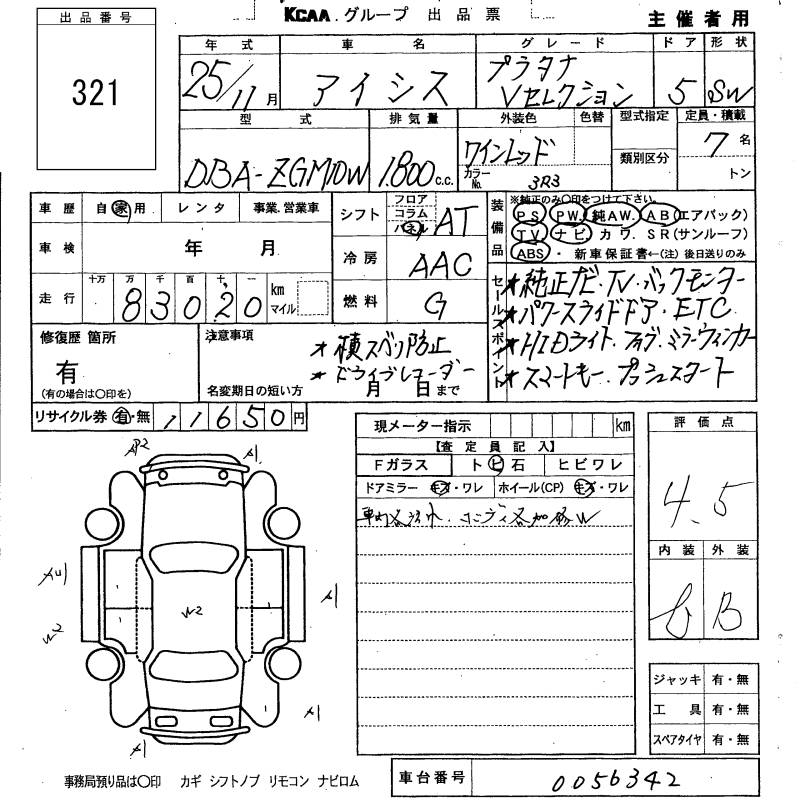 KCAA グループ 出品票
主催者用
出品番号
321
年式 車名 グレード ドア 形状
25/11月 アイシス プラタナ Vセレクション 5 SW
型式 排気量 外装色 色替 型式指定 定員・積載
DBA-ZGM10W 1800c.c. ワインレッド 類別区分 7名
カラーNo. 3R3 トン
車歴 自家用 レンタ 事業.営業車
シフト フロア コラム パネル AT
装備品 ※純正のみ○印をつけて下さい。
PS PW. 純AW. AB(エアバック)
TV. ナビ. カワ. SR(サンルーフ)
ABS ・ 新車保証書←(注)後日送りのみ
車検 年 月
冷房 AAC
走行 十万 万 千 百 十 一 km マイル
83020
燃料 G
セールスポイント
★純正ナビ・TV・バックモンター
★パワースライドドア・ETC
★HIDライト・フォグ・ミラーウィンカー
★スマートキー・プッシュスタート
修復歴 箇所
有
(有の場合は○印を)
注意事項
★横スベリ防止
★ドライブレコーダー
名変期日の短い方 月 日まで
リサイクル券 有・無 11650円
現メーター指示 km
【査定員記入】
Fガラス トビ石 ヒビワレ
ドアミラー キズ・ワレ ホイール(CP) キズ・ワレ
評価点
4.5
内装 外装
B
AP2 A1
A1
W2
W2
A1
A1 A1
ジャッキ 有・無
工具 有・無
スペアタイヤ 有・無
事務局預り品は○印 カギ シフトノブ リモコン ナビロム
車台番号 0056342